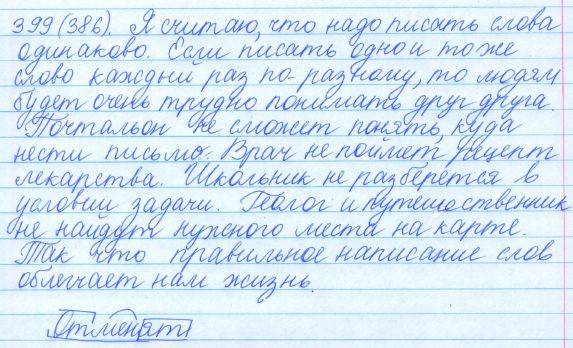 399 (386). Я считаю, что надо писать слова
одинаково. Если писать одно и то же
слово каждый раз по-разному, то людям
будет очень трудно понимать друг друга.
Почтальон не сможет понять, куда
нести письмо. Врач не поймет рецепт
лекарства. Школьник не разберётся в
условии задачи. Геолог и путешественник
не найдут нужного места на карте.
Так что правильное написание слов
облегчает нам жизнь.
Отменят